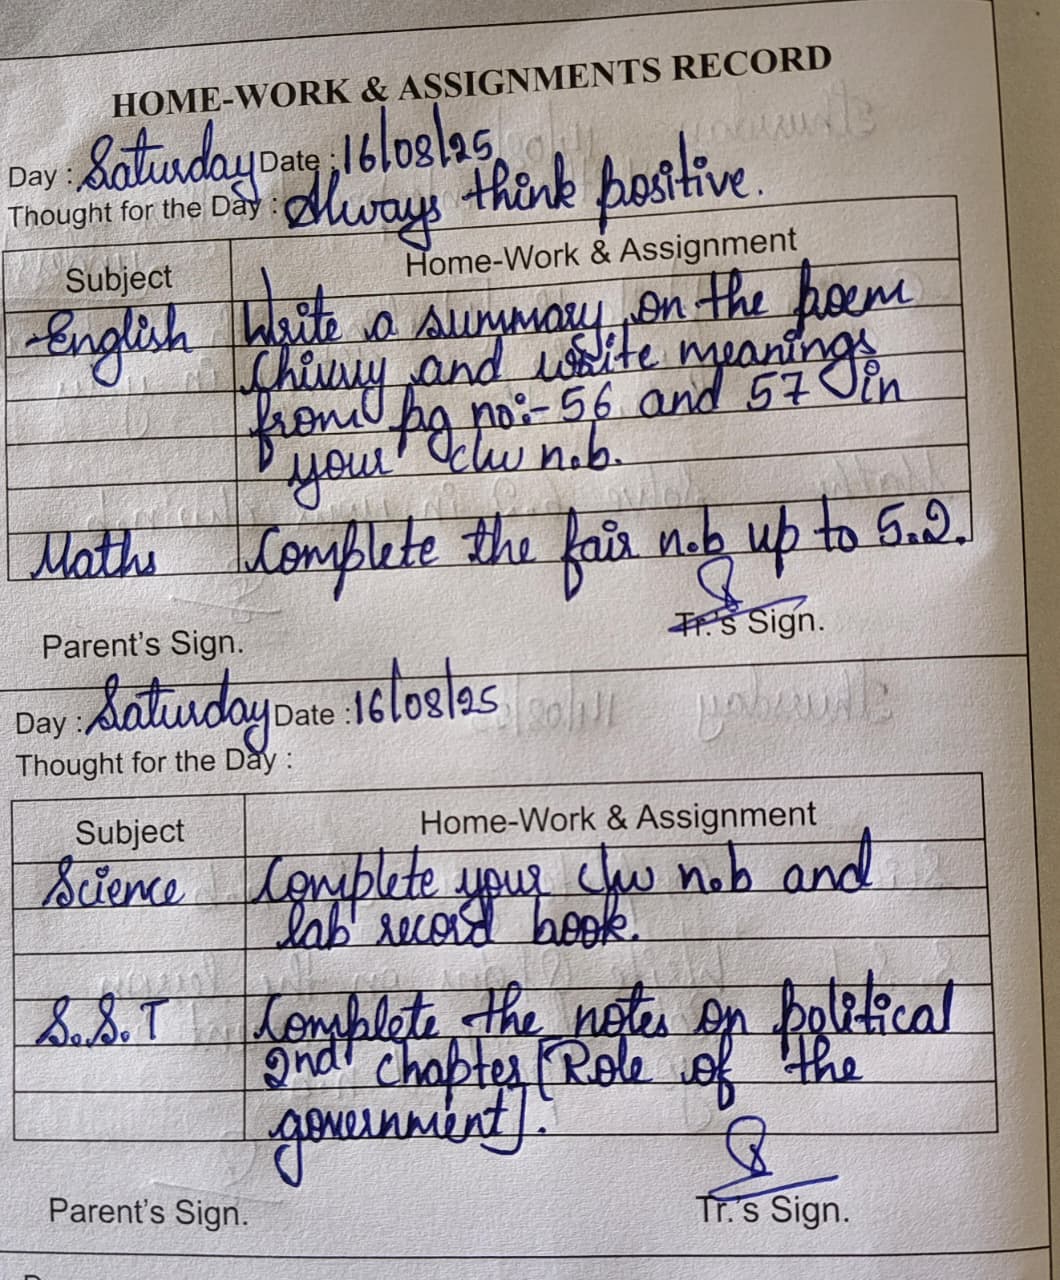 HOME-WORK & ASSIGNMENTS RECORD
Day : Saturday Date : 16/08/25
Thought for the Day : Always think positive.
Subject Home-Work & Assignment
English Write a summary on the poem
Chivvy and write meanings
from pg no:- 56 and 57 in
your c/w n.b.
Maths Complete the fair n.b up to 5.2.
Parent's Sign. Tr.'s Sign.
Day : Saturday Date : 16/08/25
Thought for the Day :
Subject Home-Work & Assignment
Science Complete your c/w n.b and
lab record book.
S.S.T Complete the notes on political
2nd chapter [Role of the
government].
Parent's Sign. Tr.'s Sign.